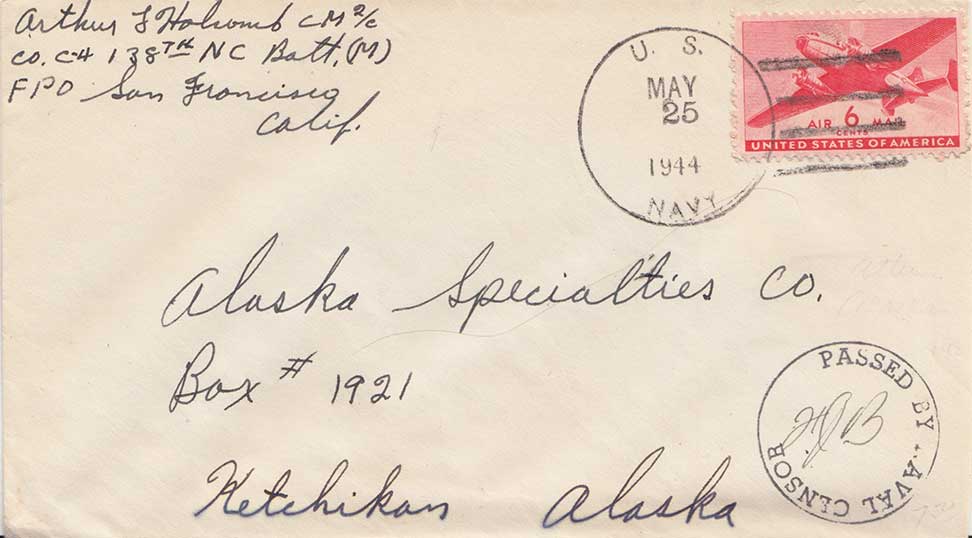 Arthur L Holcomb CM 2/c
CO. C-4 138TH NC Batt. (M)
FPO San Francisco
Calif.
U. S.
MAY
25
1944
NAVY
AIR 6 MAIL
CENTS
UNITED STATES OF AMERICA
Alaska Specialties Co.
Box # 1921
Ketchikan Alaska
PASSED BY NAVAL CENSOR
HJB